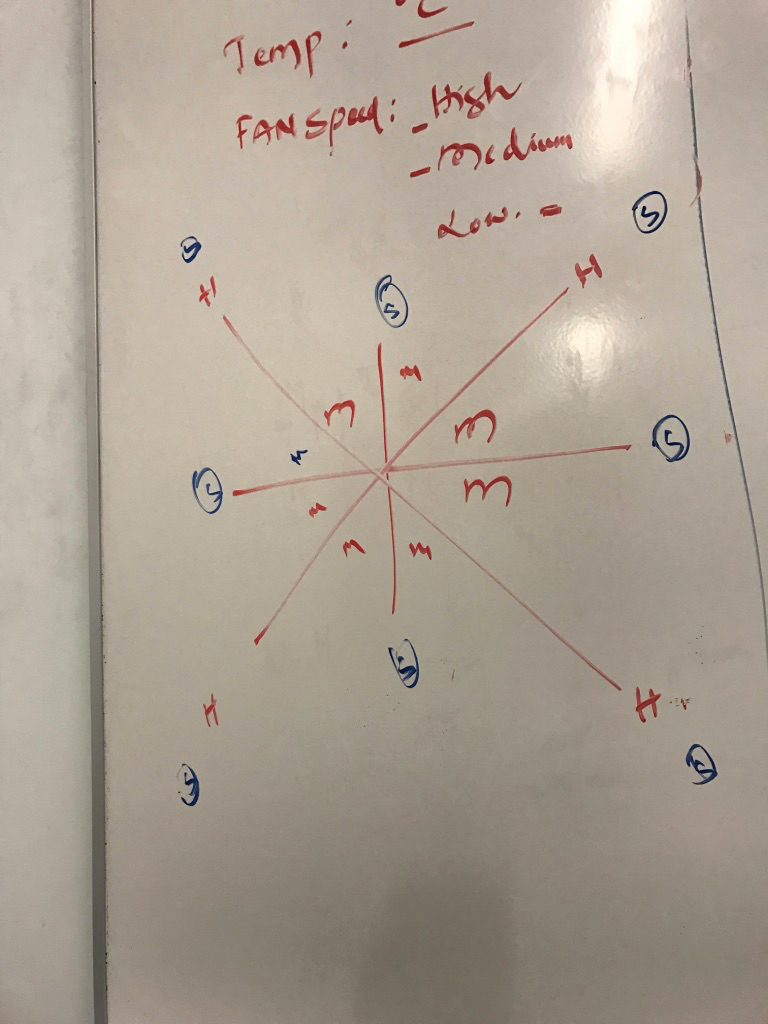 °C
Temp:
FAN Speed: - High
- Medium
Low. =
S
S
H
H
S
m
m
m
S
m
S
m
m
m
m
S
H
H
S
S